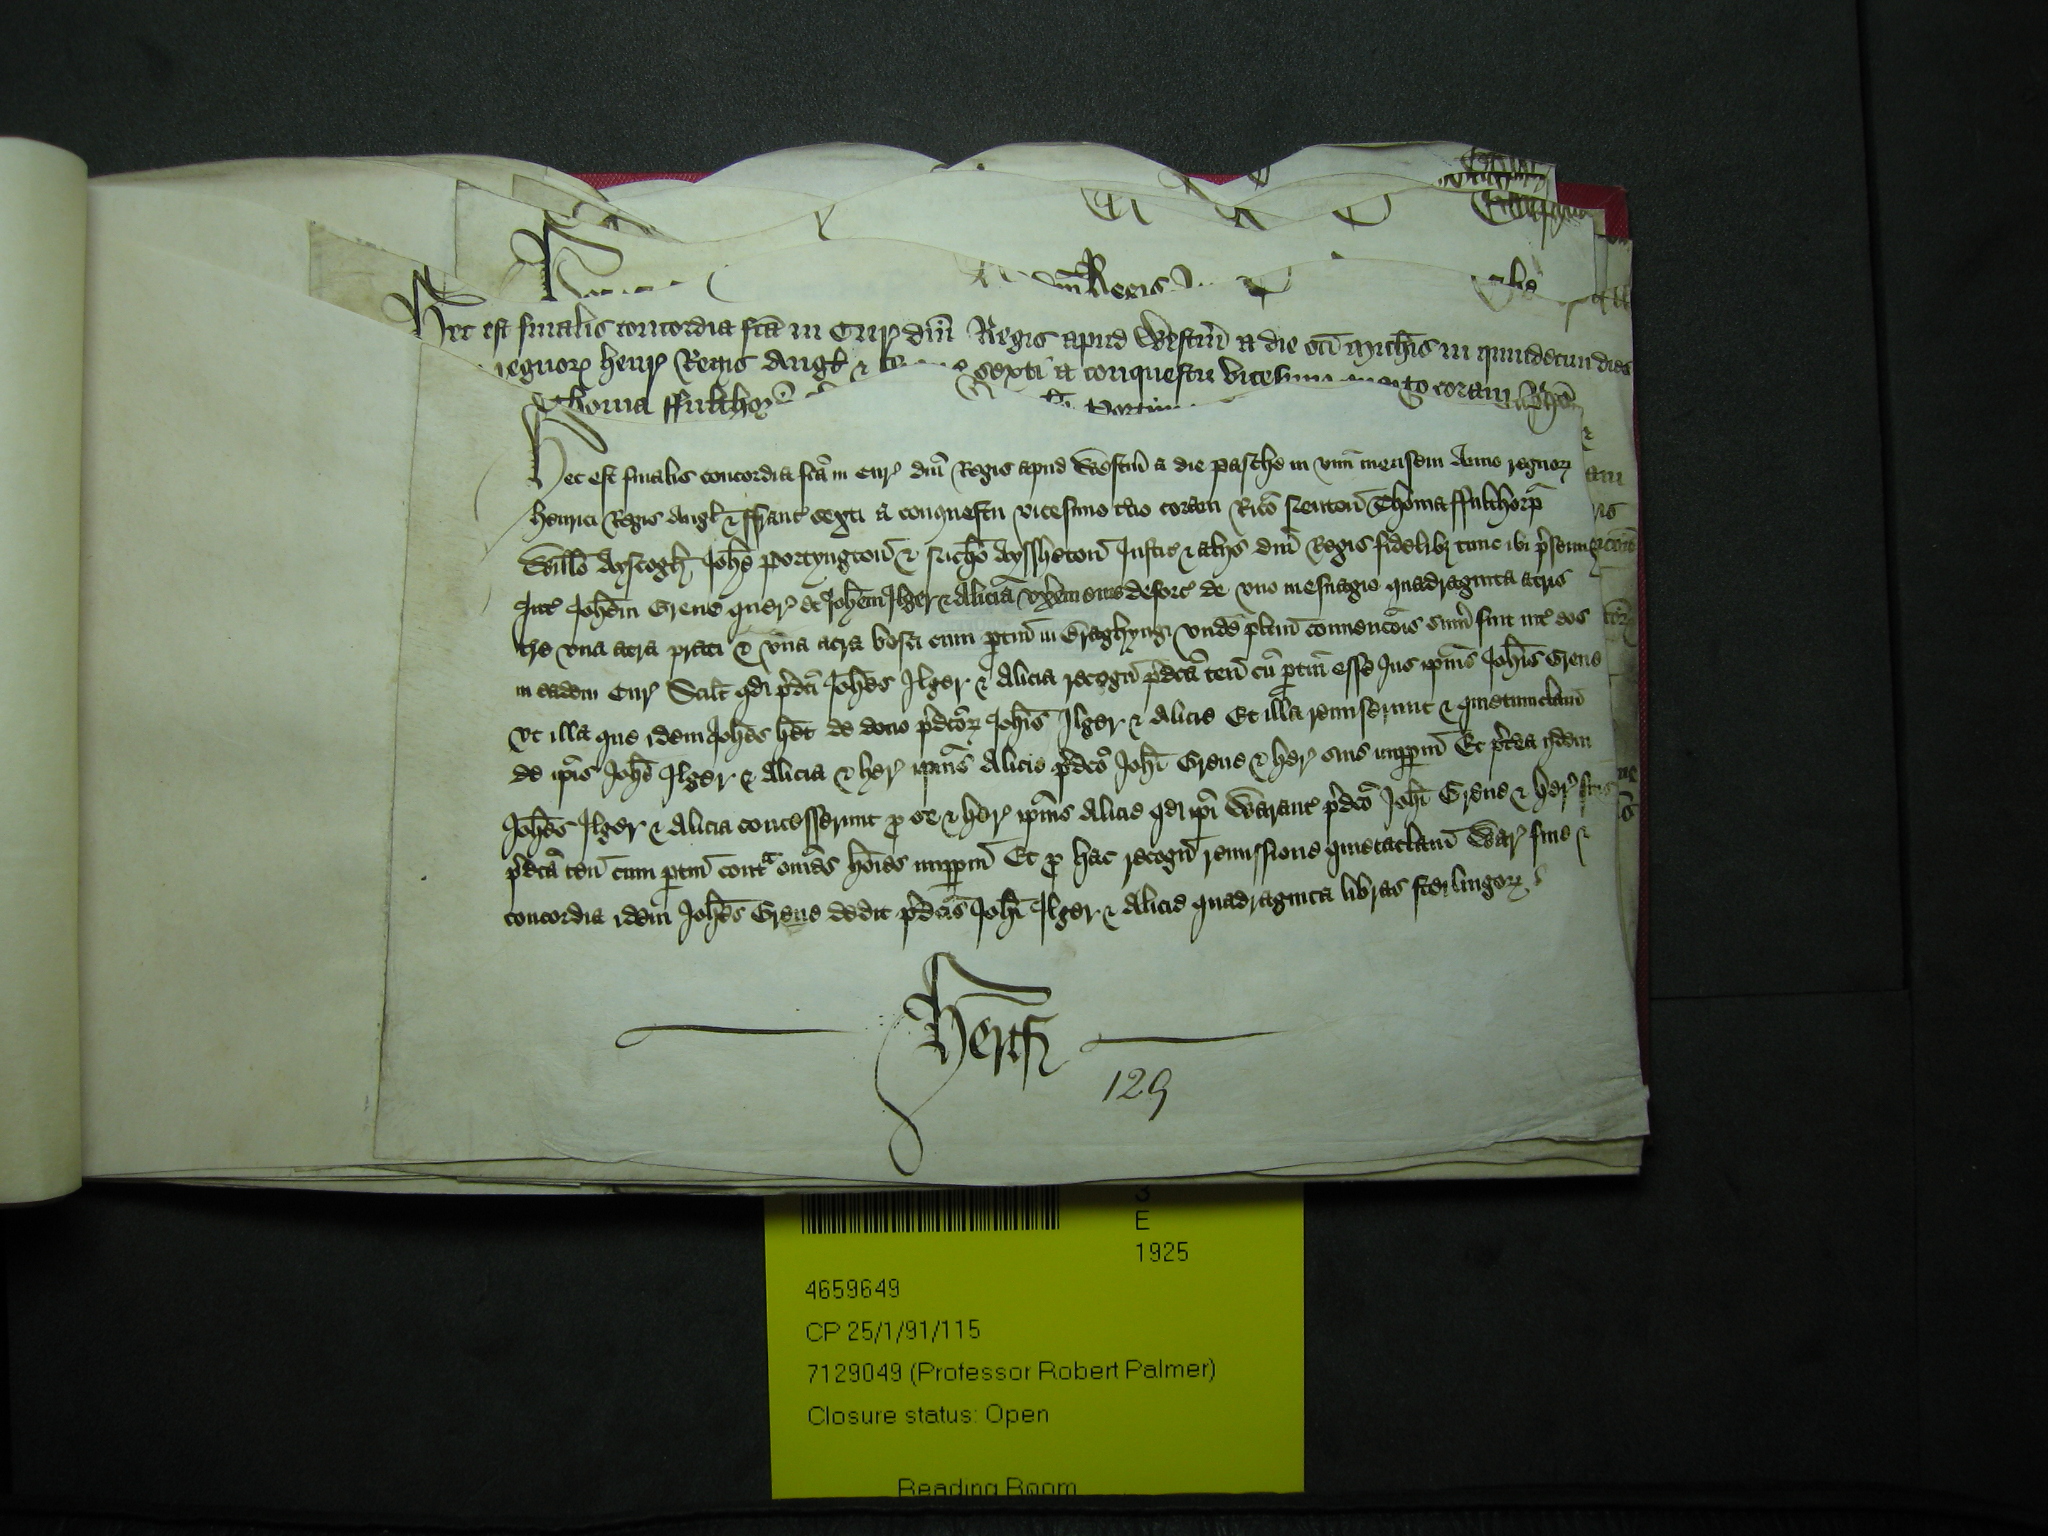 Hec est finalis concordia fca in Cur dni Regis apud Westm a die sci Michis in quindecim dies
regnor Henr Regis Angl & sexti a conquestu vicesimo coram
Thoma ffulthorp
Hec est finalis concordia fca in Cur dni Regis apud Westm a die Pasche in vnu mensem Anno regnor
Henrici Regis Angl & ffranc sexti a conquestu vicesimo coram Rico Neuton Thoma ffulthorp
Willo Ayscogh Johe Portyngton & Nicho Ayssheton Justic & aliis dni Regis fidelibz tunc ibi psentibz
Int Johem Grene quer et Johem Ilger & Aliciam vxem eius deforc de vno mesuagio quadraginta acris
tre vna acra prati & vna acra bosci cum ptin in Braghyng vnde plitum conuencois sum fuit int eos
in eadem Cur Scilt qd pdci Johes Ilger & Alicia recogn pdca ten cu ptin esse Ius ipius Johis Grene
vt illa que idem Johes het de dono pdcor Johis Ilger & Alicie Et illa remiserunt & quietumclam
de ipis Johe Ilger & Alicia & her ipius Alicie pdco Johi Grene & her suis imppm Et pterea iidem
Johes Ilger & Alicia concesserunt p se & her ipius Alicie qd ipi Warant pdco Johi Grene & her suis
pdca ten cum ptin contra omes hoies imppm Et p hac recogn remissione quietaclam War fine &
concordia idem Johes Grene dedit pdcis Johi Ilger & Alicie quadraginta libras sterlingor
Hertf
129
3
E
1925
4659649
CP 25/1/91/115
7129049 (Professor Robert Palmer)
Closure status: Open
Reading Room